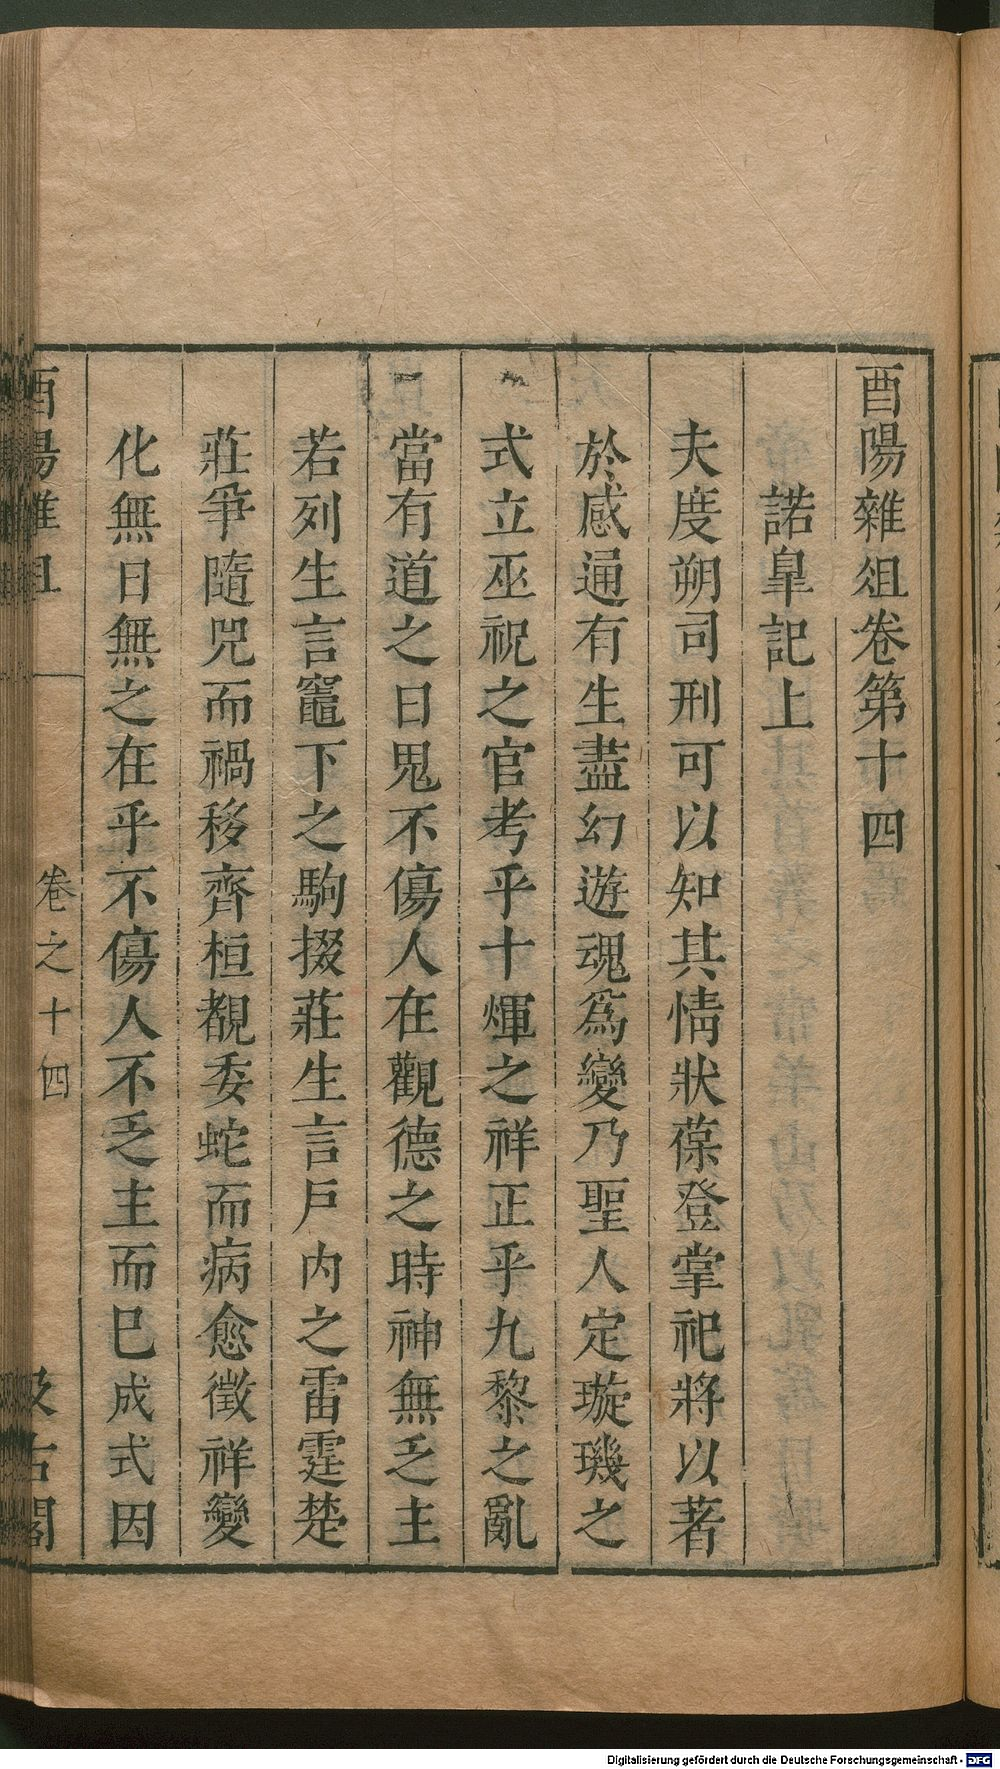 酉陽雜俎卷第十四
諾臯記上
夫度朔司刑可以知其情狀葆登掌祀將以著
於感通有生盡幻遊魂爲變乃聖人定璇璣之
式立巫祝之官考乎十煇之祥正乎九黎之亂
當有道之日鬼不傷人在觀德之時神無乏主
若列生言竈下之駒掇莊生言戶內之雷霆楚
莊爭隨兕而禍移齊桓覩委蛇而病愈徵祥變
化無日無之在乎不傷人不乏主而已成式因
酉陽雜俎
卷之十四
汲古閣
Digitalisierung gefördert durch die Deutsche Forschungsgemeinschaft - DFG